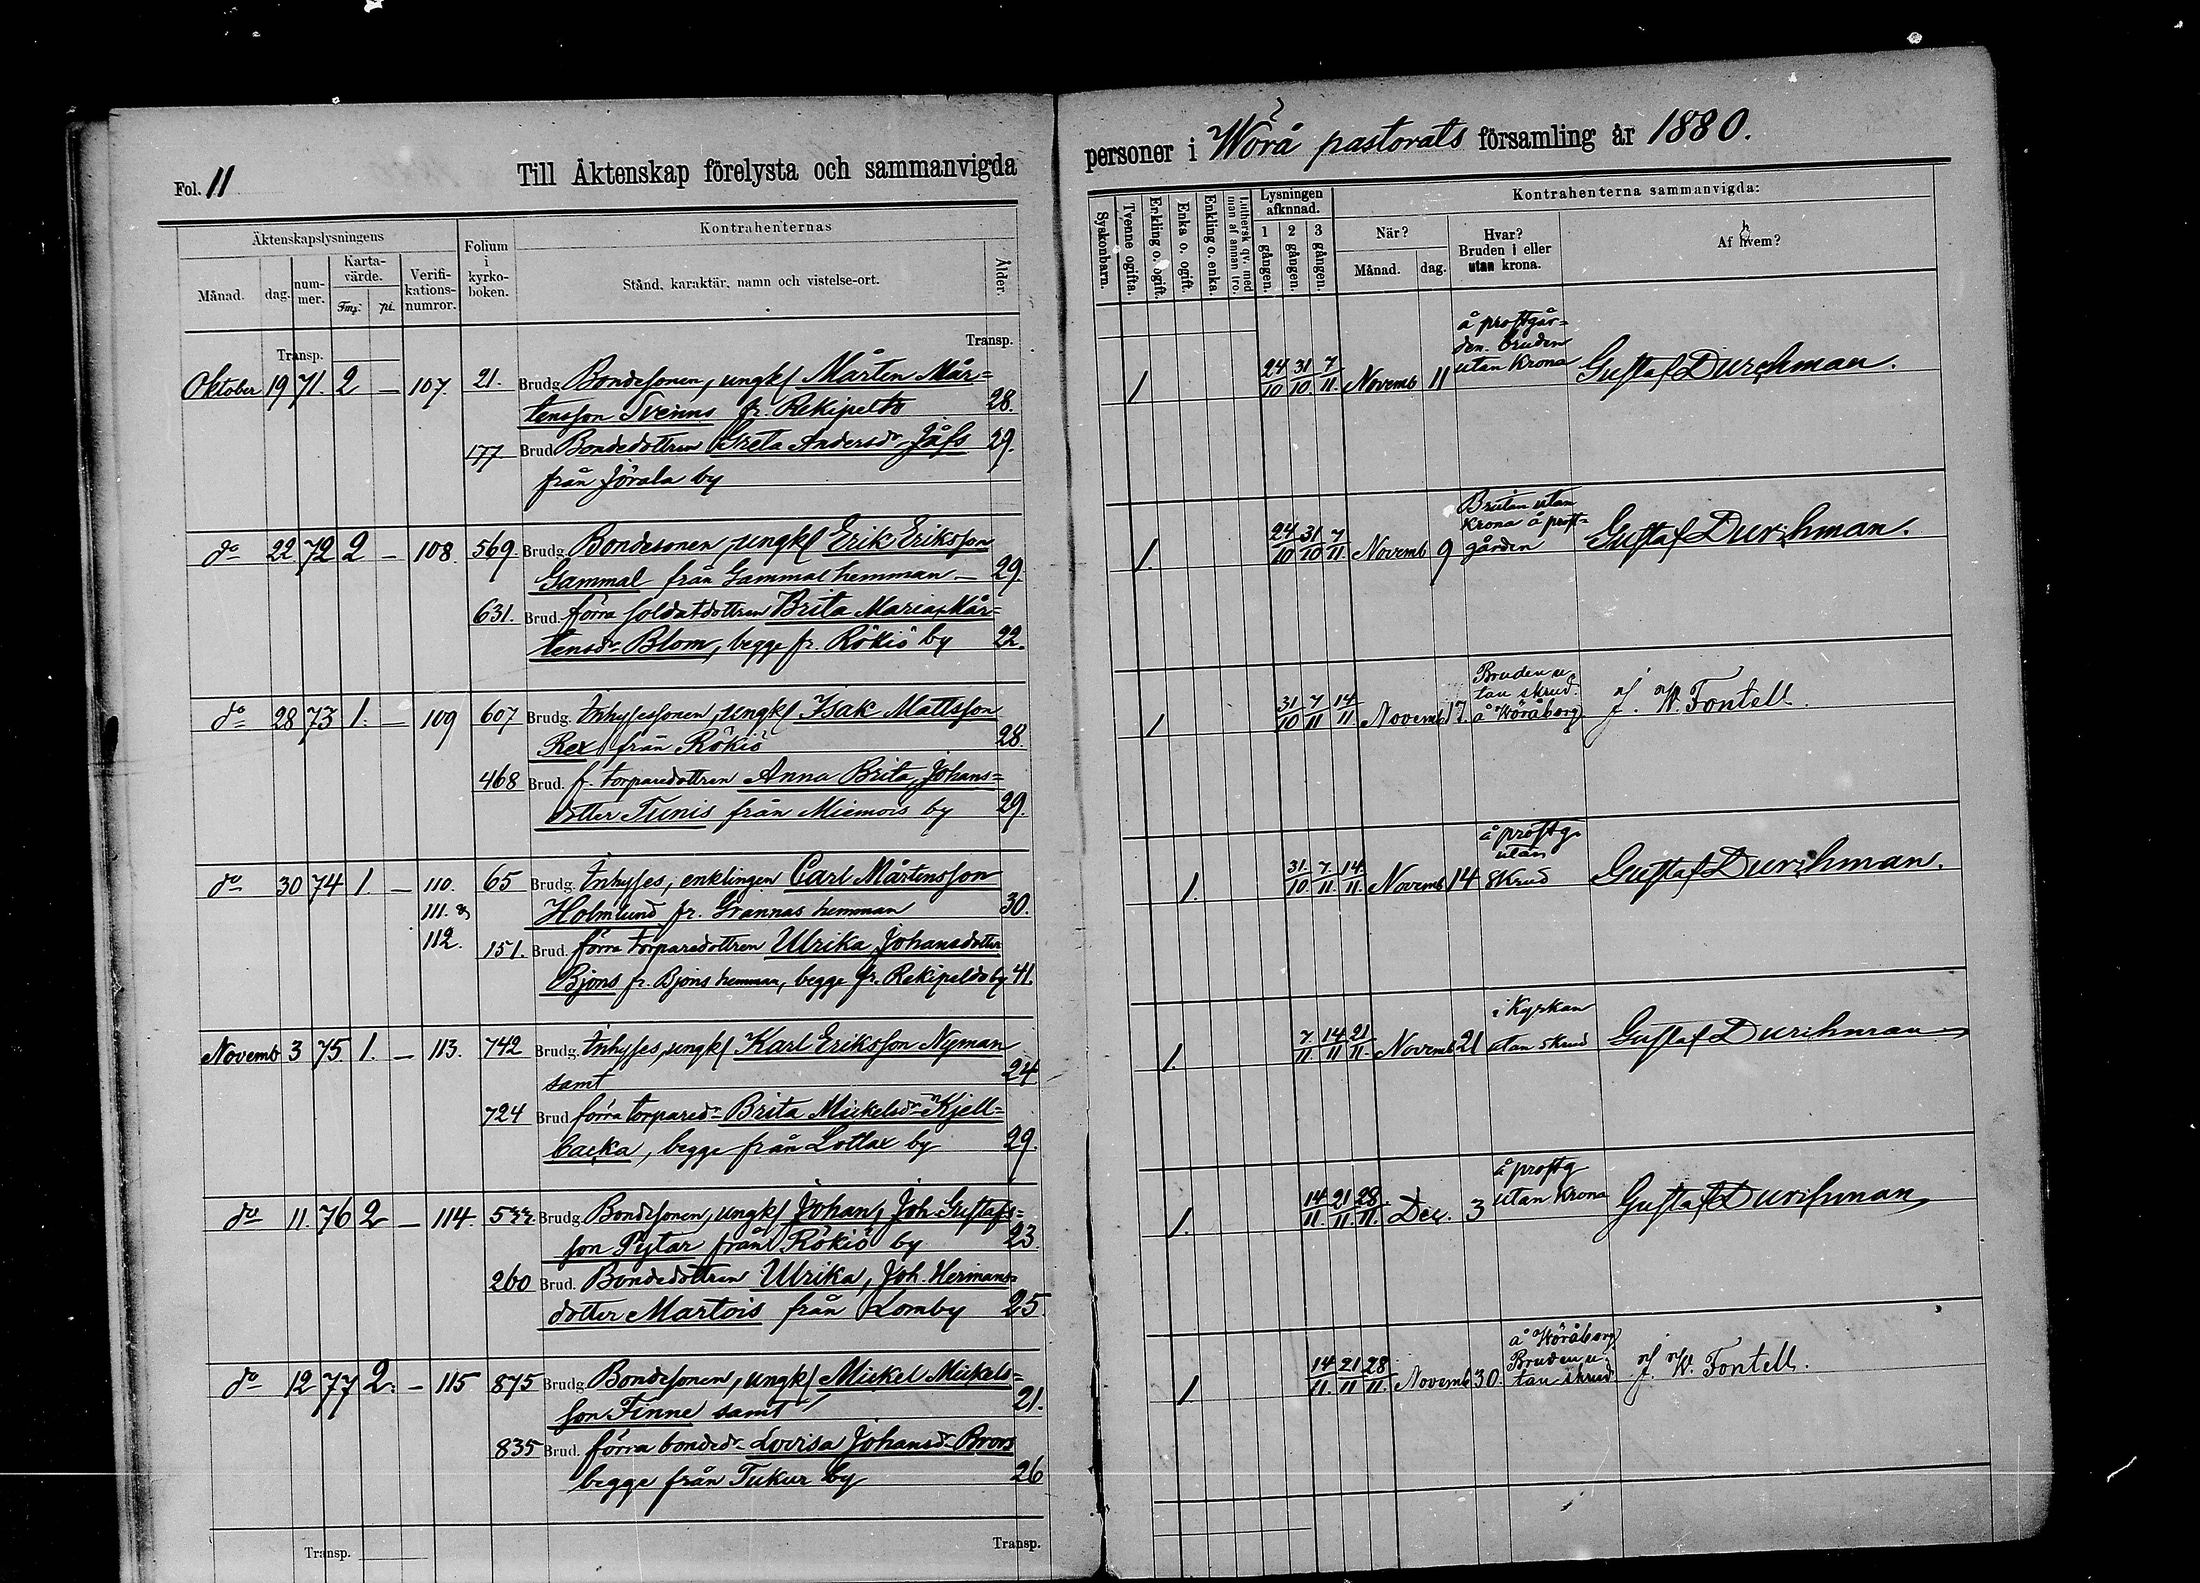 Fol. 11
Till Äktenskap förelysta och sammanvigda
Äktenskapslysningens
Folium i kyrkoboken.
Kontrahenternas
Månad. dag. nummer. Kartavärde. Fmk. pi. Verifikationsnumror. Stånd, karaktär, namn och vistelse-ort. Ålder.
Transp. Transp.
Oktober 19 71. 2 — 107. 21. Brudg. Bondesonen, ungkl Mårten Mår=
tensson Svenns fr. Rekipelto 28.
177 Brud. Bondedottren Greta Andersdr Jåfs 29.
från Jörala by
do 22 72 2 — 108. 569 Brudg. Bondesonen, ungkl Erik Eriksson
Gammal från Gammal hemman — 29
631. Brud. förra soldatdottren Brita Maria Mår=
tensdr Blom, begge fr. Rökiö by 22.
do 28 73 1. — 109 607 Brudg. Inhysessonen, ungkl Isak Mattsson
Rex från Rökiö 28.
468 Brud. f. torparedottren Anna Brita Johans=
dotter Tunis från Miemois by 29.
do 30 74 1. — 110. 65 Brudg. Inhyses, enklingen Carl Mårtensson
111. &
Holmlund fr. Grannas hemman 30.
112. 151. Brud. förra torparedottren Ulrika Johansdotter
Bjons fr. Bjons hemman, begge fr. Rekipeldo by 41.
Novemb 3 75 1. — 113. 742 Brudg. Inhyses, ungkl Karl Eriksson Nyman
samt 24
724 Brud. förra torparedr Brita Mickelsdr Kjell=
backa, begge från Lotlax by 29.
do 11. 76 2 — 114. 522. Brudg. Bondesonen, ungkl Johan, Joh. Gustafs=
son Pytar från Rökiö by 23.
260 Brud. Bondedottren Ulrika, Joh. Hermans=
dotter Martois från Lomby 25
do 12 77 2. — 115 875 Brudg. Bondesonen, ungkl Mickel Mickels=
son Finne samt 21.
835 Brud. förra bondedr Lovisa Johansdr Brors
begge från Tukur by 26
Transp. Transp.
personer i Wörå pastorats församling år 1880.
Syskonbarn. Tvenne ogifta. Enkling o. ogift. Enka o. ogift. Enkling o. enka. Luthersk qv. med man af annan tro.
Lysningen afkunnad. 1 gången. 2 gången. 3 gången.
Kontrahenterna sammanvigda:
När? Månad. dag. Hvar? Bruden i eller utan krona. Af hvem?
1 24/10 31/10. 7/11. Novemb 11 å prostgår=
den. bruden
utan Krona Gustaf Durchman.
1. 24/10 31/10 7/11. Novemb 9 Brutan utan
Krona å prost=
gården Gustaf Durchman.
1 31/10 7/11 14/11 Novemb 17. Bruden u=
tan skrud.
å Wöråborg. J. W. Fontell.
1. 31/10 7/11 14/11. Novemb 14 å prostg.
utan
skrud Gustaf Durchman.
1. 7/11. 14/11 21/11. Novemb 21 i Kyrkan
utan skrud Gustaf Durchman
1. 14/11. 21/11. 28/11. Dec. 3 å prostg
utan Krona Gustaf Durchman
1. 14/11. 21/11 28/11. Novemb 30. å Wöråborg
Bruden u=
tan skrud J. W. Fontell.